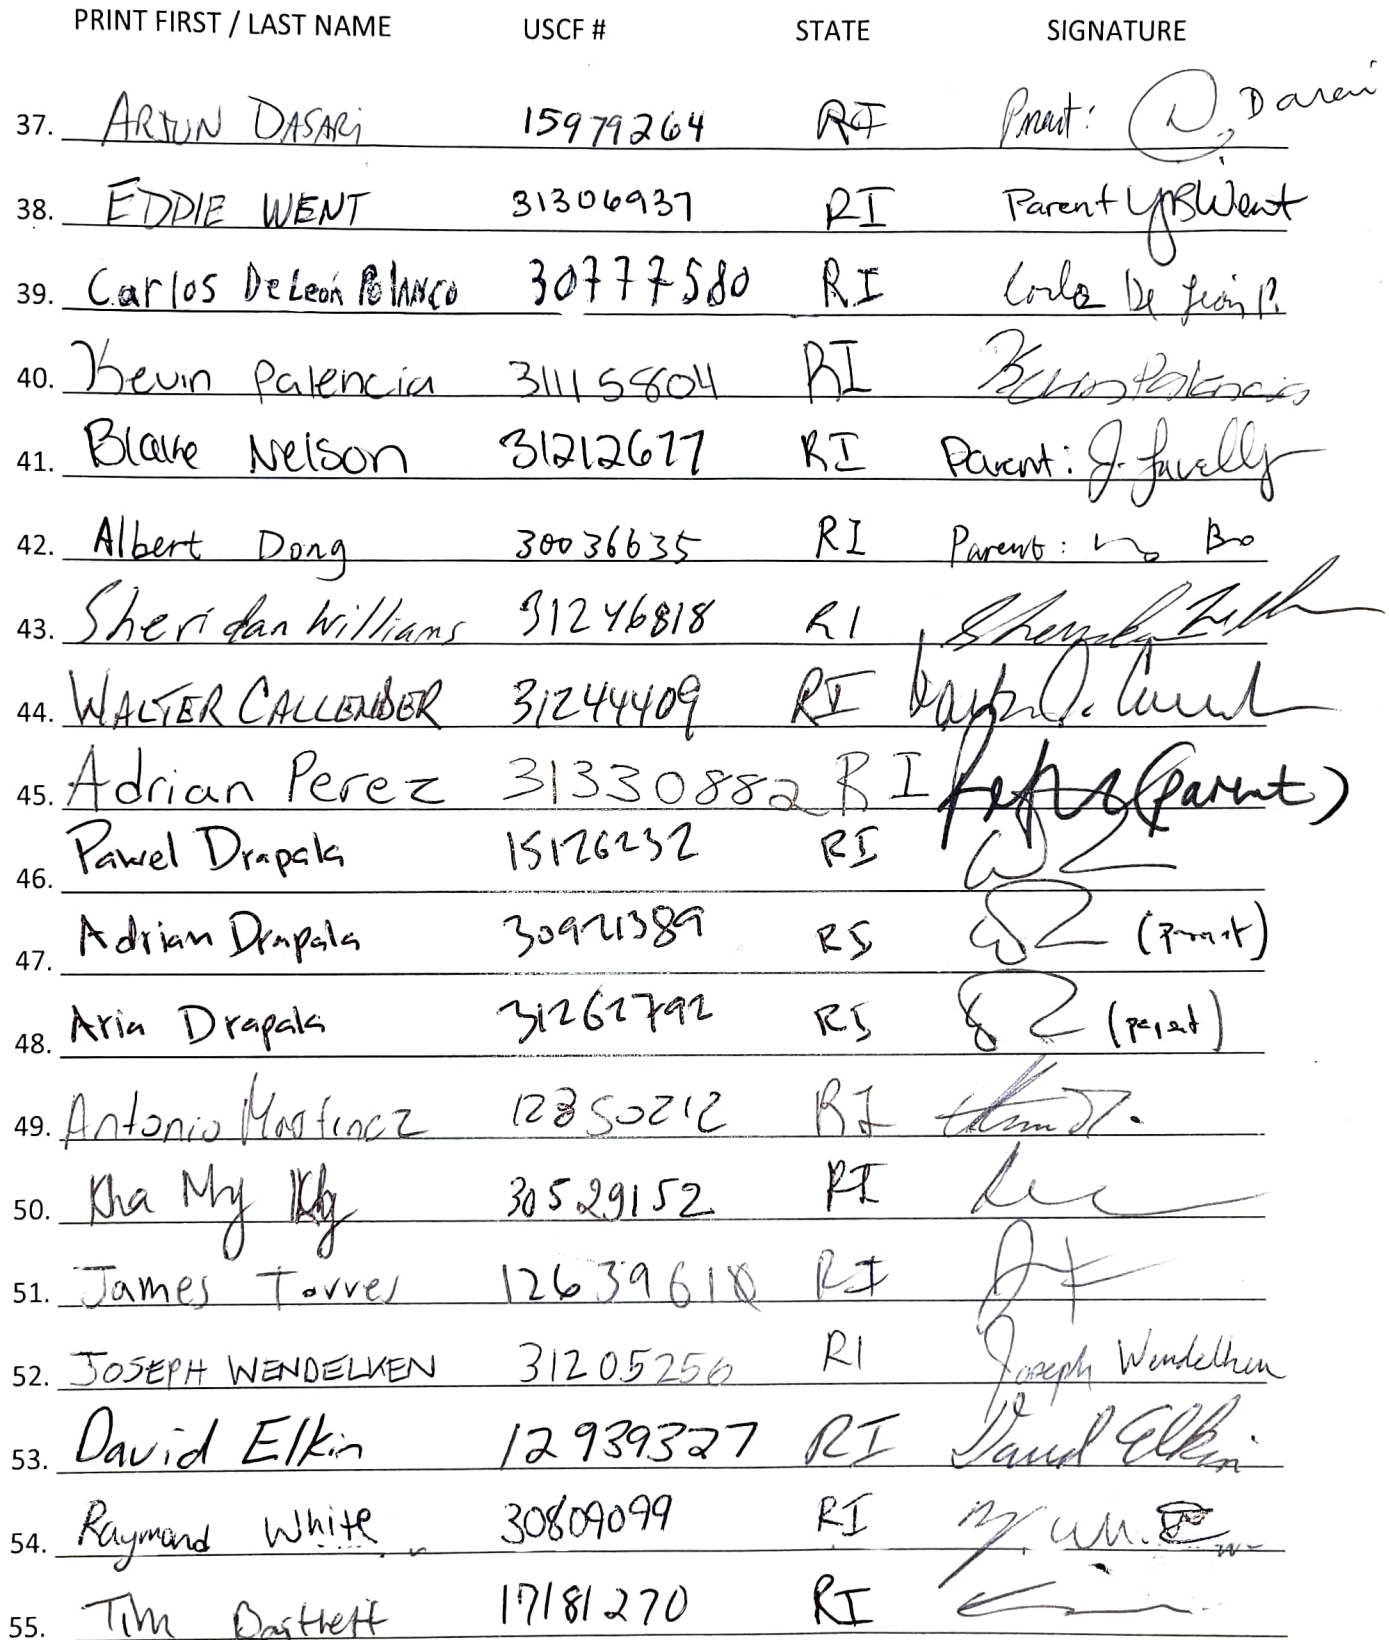 PRINT FIRST / LAST NAME USCF # STATE SIGNATURE
37. ARJUN DASARI 15979264 RI Parent: D. Dasari
38. EDDIE WENT 31306937 RI Parent YBWent
39. Carlos De León Polanco 30777580 RI Carlos De León P.
40. Kevin Palencia 31115804 RI Kevin Palencia
41. Blake Nelson 31212677 RI Parent: J.
42. Albert Dong 30036635 RI Parent: Bo
43. Sheridan Williams 31246818 RI
44. WALTER CALLENDER 31244409 RI
45. Adrian Perez 31330882 RI (parent)
46. Pawel Drapala 15126232 RI
47. Adrian Drapala 30921389 RI (parent)
48. Aria Drapala 31262792 RI (parent)
49. Antonio Martinez 12350212 RI
50. Kha My 30529152 RI
51. James Torres 12639618 RI
52. JOSEPH WENDELKEN 31205256 RI Joseph Wendelken
53. David Elkin 12939327 RI David Elkin
54. Raymond White 30809099 RI
55. Tim Bartlett 17181270 RI